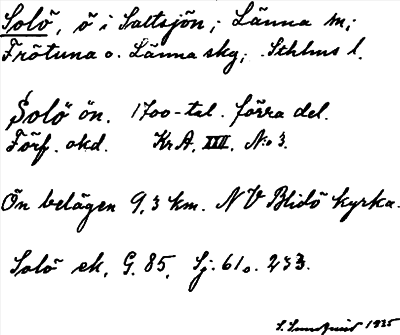 Solö, ö i Saltsjön, Länna sn;
Frötuna o. Länna skg; Sthlms l.
Solö ön. 1700-tal. förra del.
Förf. okd. KrA, XIII, N:o 3.
Ön belägen 9,3 km. NV Blidö kyrka.
Solö ek, G. 85, Sj. 61 o. 233.
S. Lundqvist 1935